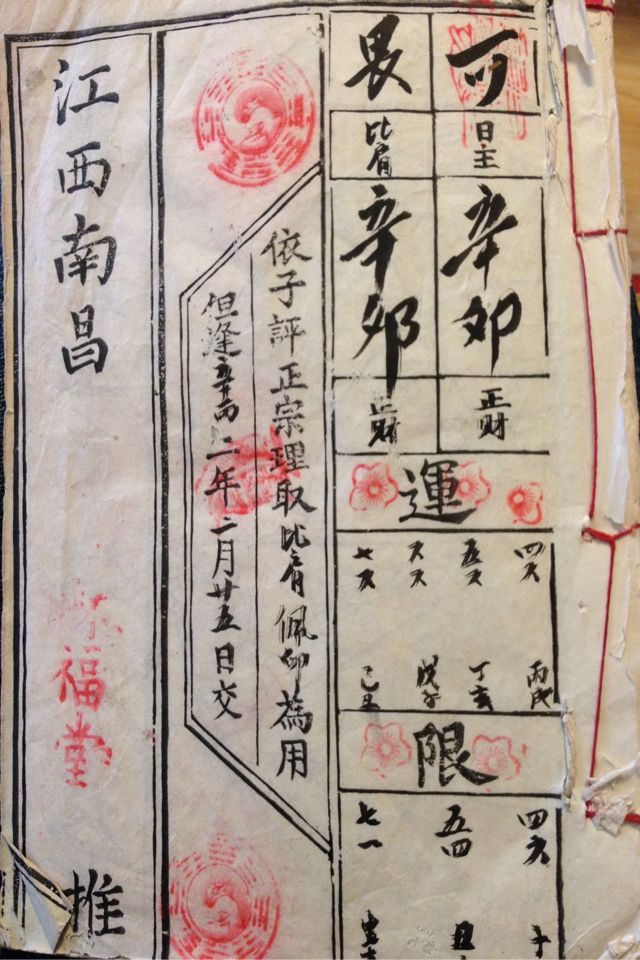 可
日主
辛卯
正财
畏
比肩
辛卯
正财
運
四六 丙戌
五六 丁亥
六六 戊子
七六 己丑
限
四六
五四
七一
依子評正宗理取比肩佩印為用
但逢辛丙二年二月廿五日交
江西南昌
福堂
推